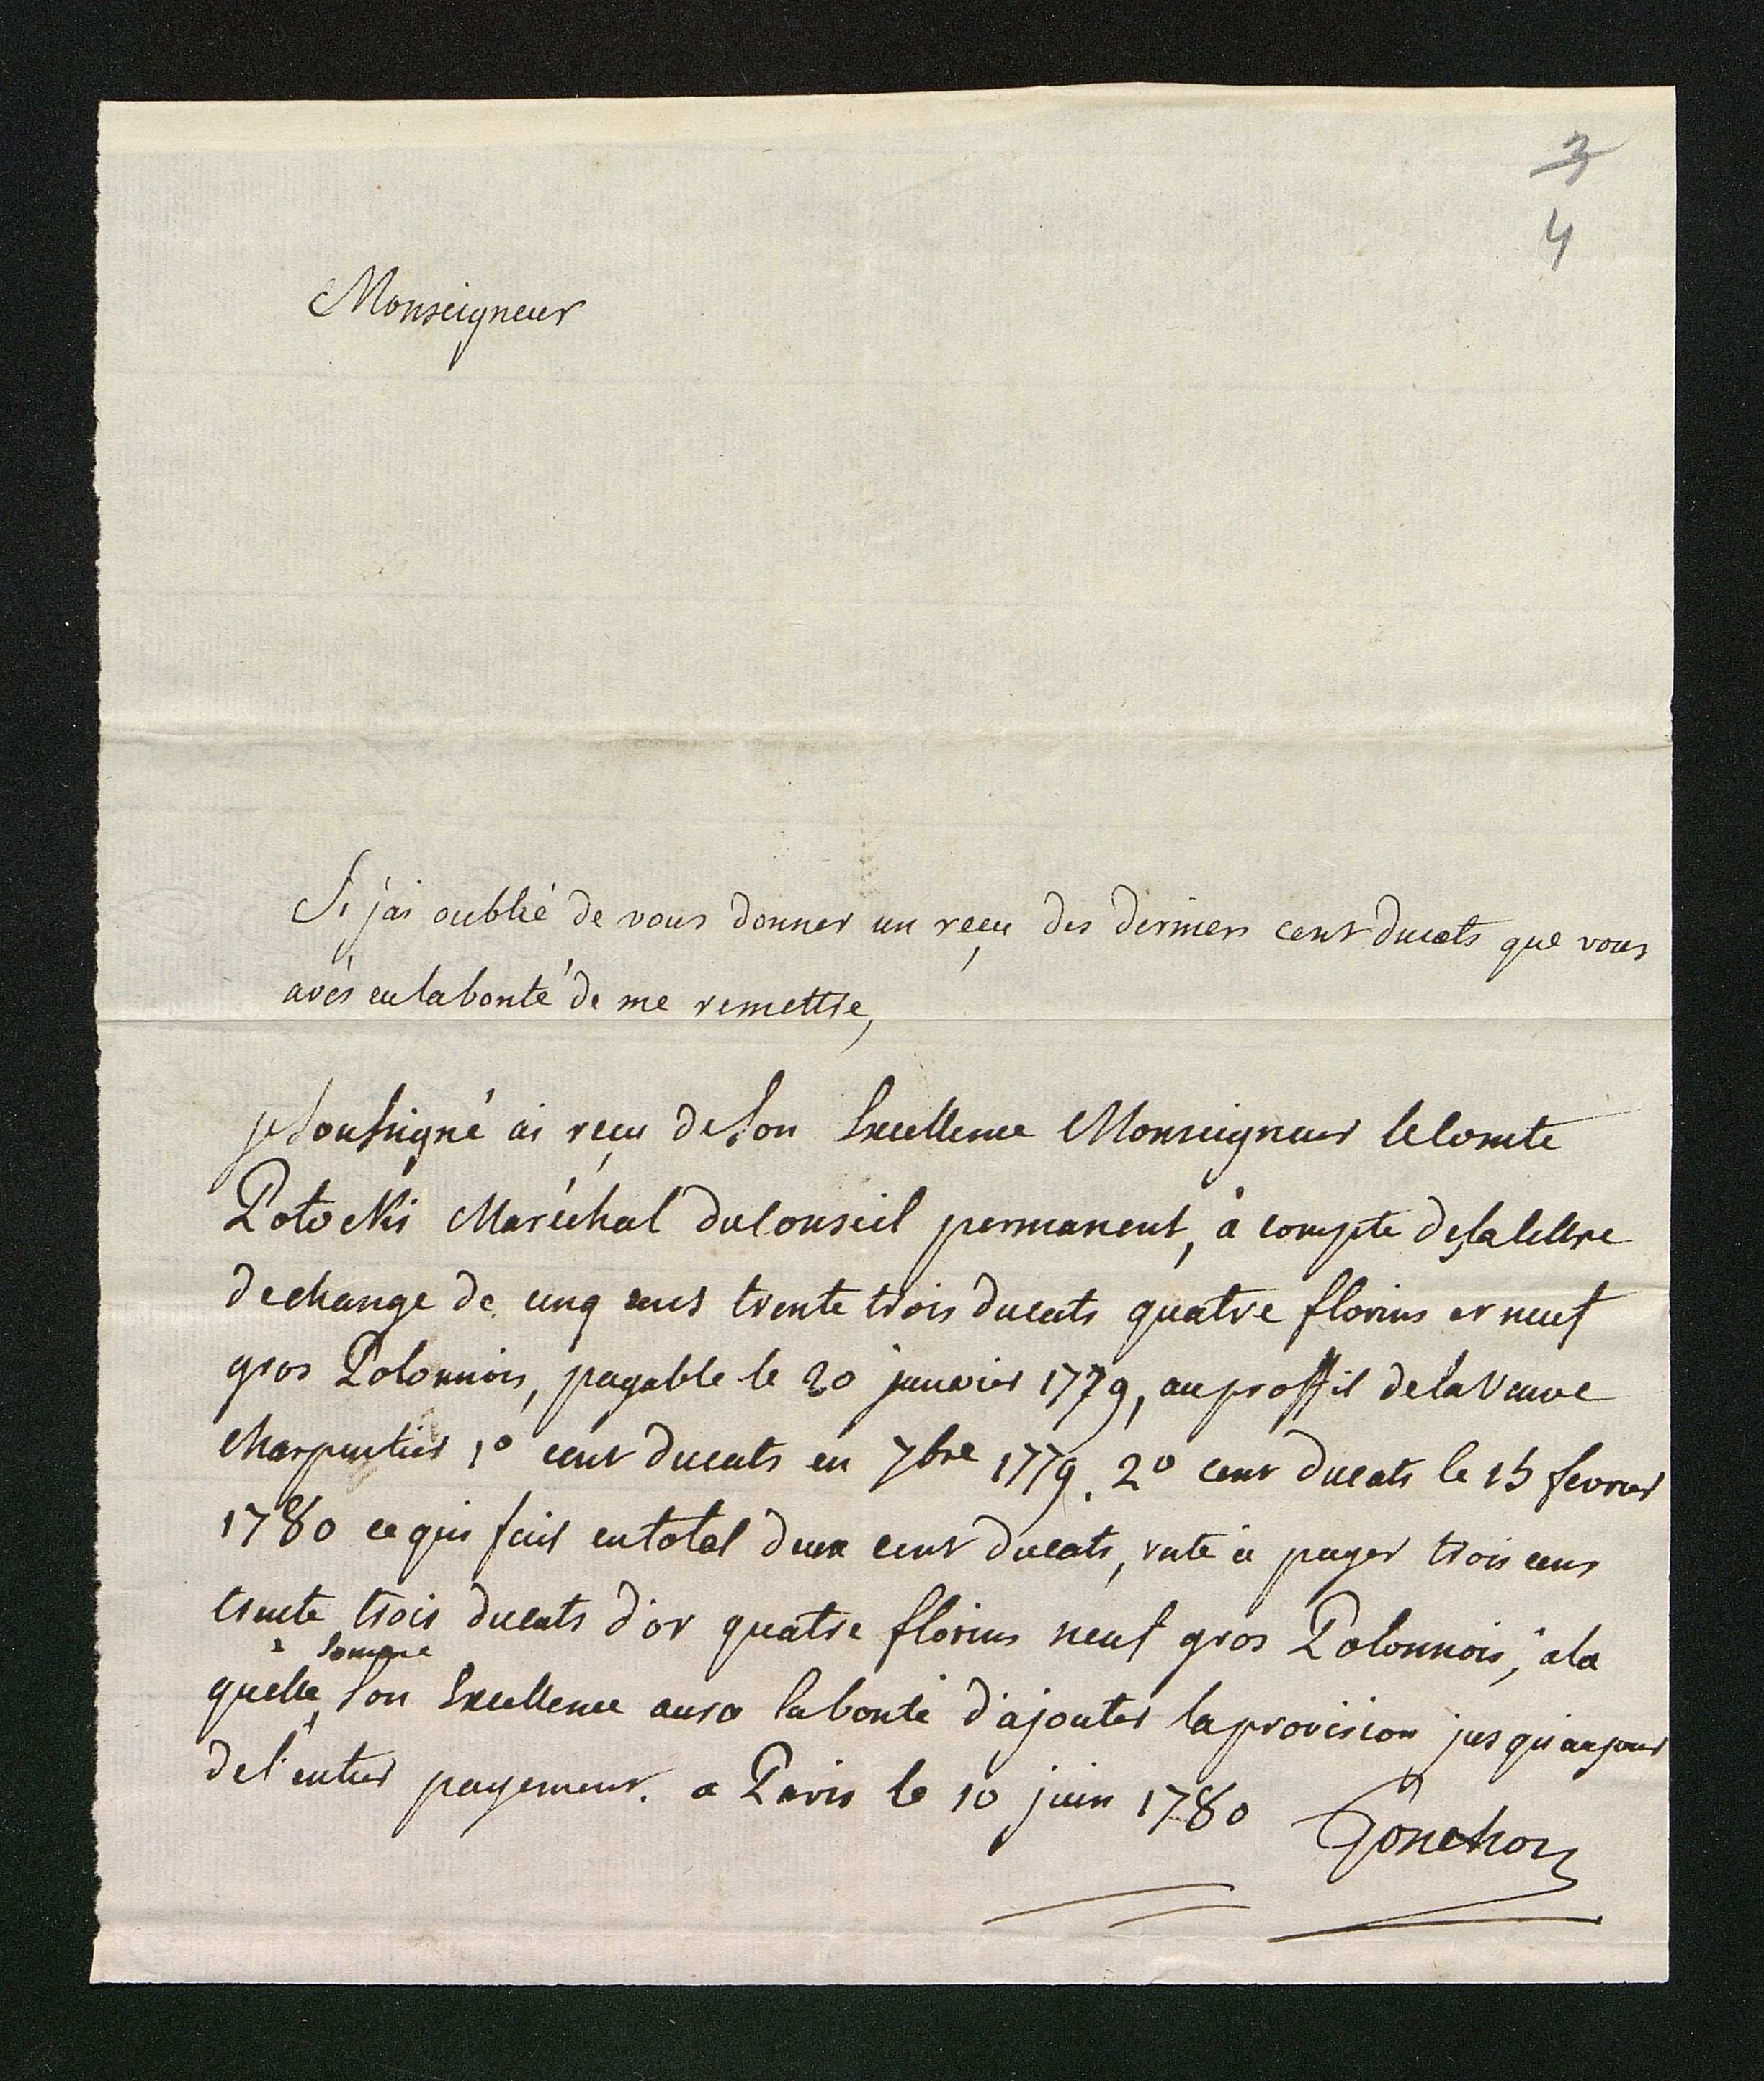 3
4
Monseigneur
Si j'ai oublié de vous donner un reçu des derniers cent ducats que vous
avés eu la bonté de me remettre,
je Soussigné ai reçu de Son Excellence Monseigneur le Comte
Potocki Maréchal du Conseil permanent, à compte de sa lettre
de change de cinq cens trente trois ducats quatre florins et neuf
gros Polonnois, payable le 20 janvier 1779, au proffit de la Veuve
Charpentier 1º cent ducats en 7bre 1779. 2º cent ducats le 15 fevrier
1780 ce qui fait en total deux cent ducats, reste à payer trois cens
trente trois ducats d'or quatre florins neuf gros Polonnois, à la
somme
quelle Son Excellence aura la bonté d'ajouter la provision jusqu'au jour
de l'entier payement. a Paris le 10 juin 1780 Gonchon